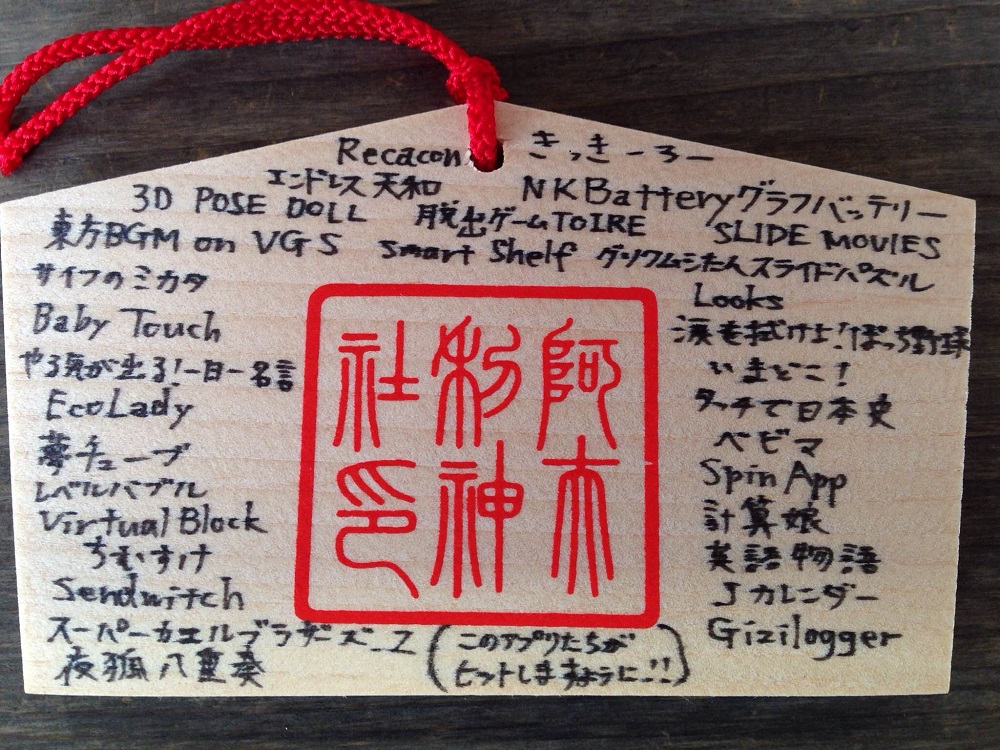 Recacon きっきーろー
エンドレス天和 NKBatteryグラフバッテリー
3D POSE DOLL 脱出ゲームTOIRE SLIDE MOVIES
東方BGM on VGS Smart Shelf グソクムシたんスライドパズル
サイフのミカタ
Baby Touch
やる気が出る!一日一名言
EcoLady
夢チューブ
レベルバブル
Virtual Block
ちむすけ
Sendwitch
スーパーカエルブラザーズ_Z
夜狐八重奏
Looks
涙を拭けよ!ぼっち野球
いまどこ!
タッチで日本史
ベビマ
Spin App
計算娘
英語物語
Jカレンダー
Gizilogger
(このアプリたちが
ヒットしますように!!)
阿夫
利神
社印